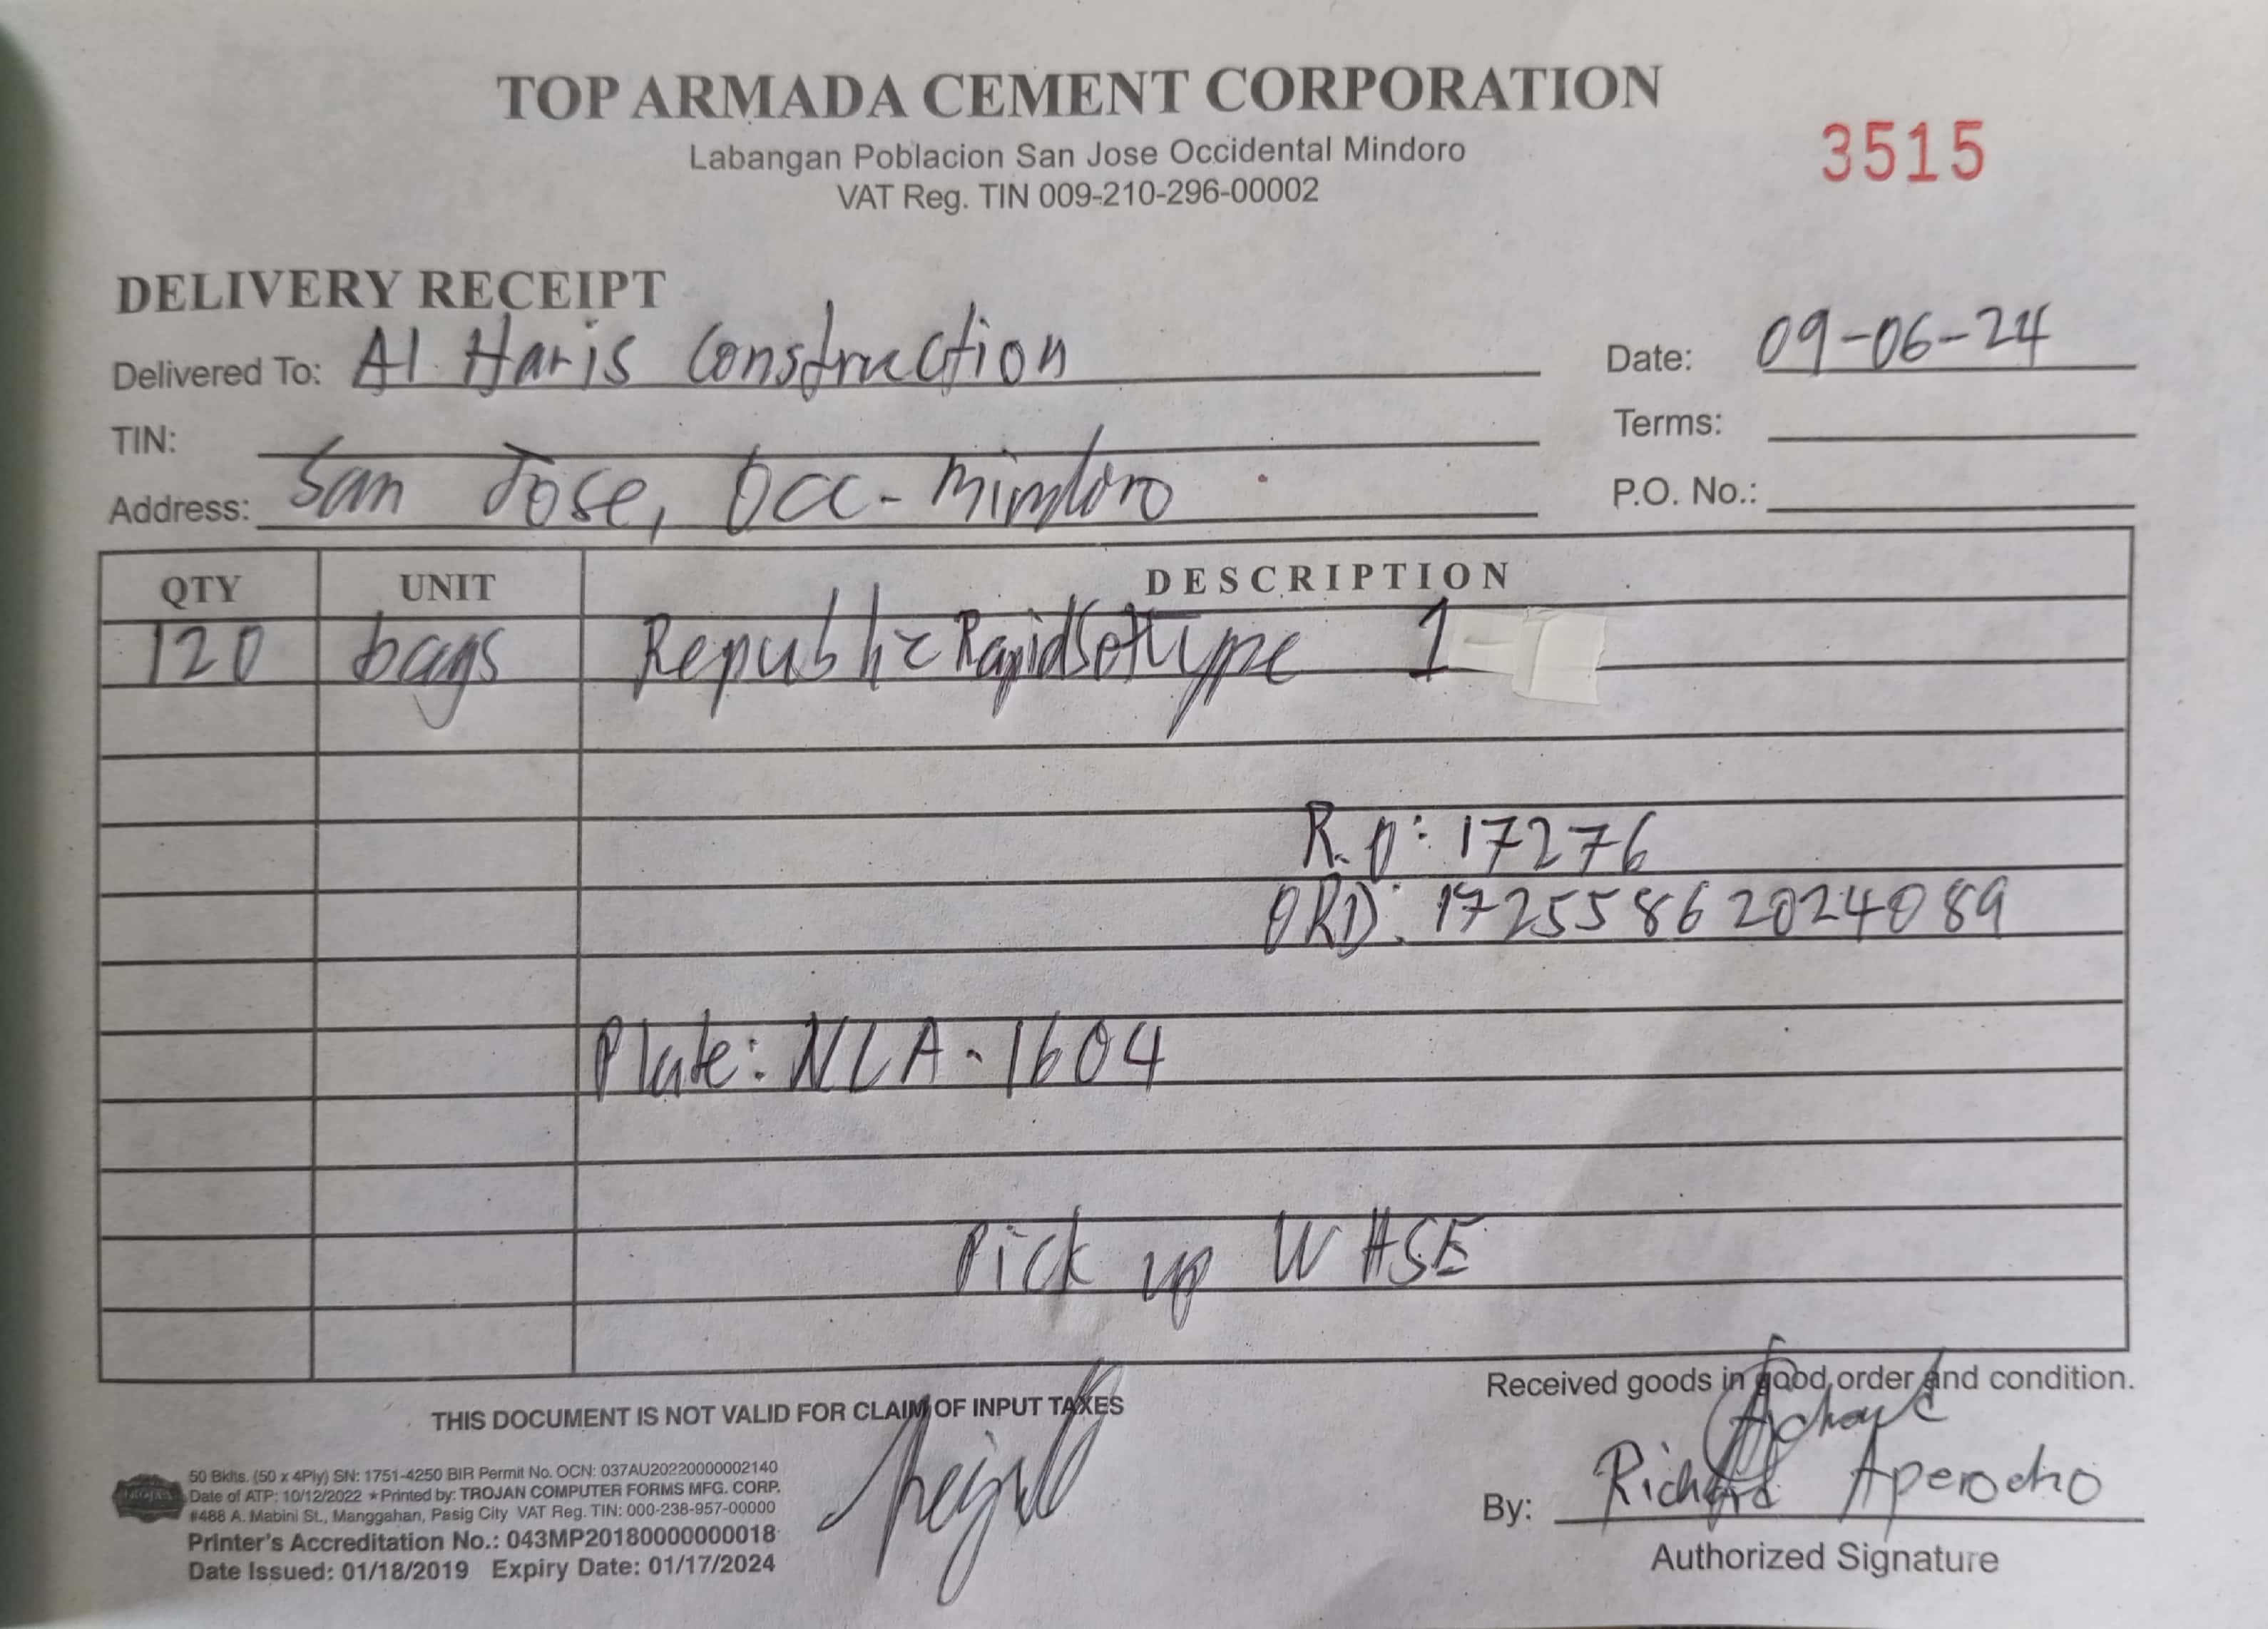 TOP ARMADA CEMENT CORPORATION
Labangan Poblacion San Jose Occidental Mindoro
VAT Reg. TIN 009-210-296-00002
3515
DELIVERY RECEIPT
Delivered To: Al Haris Construction
Date: 09-06-24
TIN:
Terms:
Address: San Jose, Occ-Mindoro
P.O. No.:
QTY UNIT DESCRIPTION
120 bags Republic Rapidset type 1
R.O: 17276
ORD: 1725586202 4089
Plate: NLA-1604
Pick up WHSE
THIS DOCUMENT IS NOT VALID FOR CLAIM OF INPUT TAXES
Received goods in good order and condition.
50 Bklts. (50 x 4Ply) SN: 1751-4250 BIR Permit No. OCN: 037AU20220000002140
Date of ATP: 10/12/2022 ★Printed by: TROJAN COMPUTER FORMS MFG. CORP.
#486 A. Mabini St., Manggahan, Pasig City VAT Reg. TIN: 000-238-957-00000
Printer's Accreditation No.: 043MP20180000000018
Date Issued: 01/18/2019 Expiry Date: 01/17/2024
By: Richard Aperocho
Authorized Signature